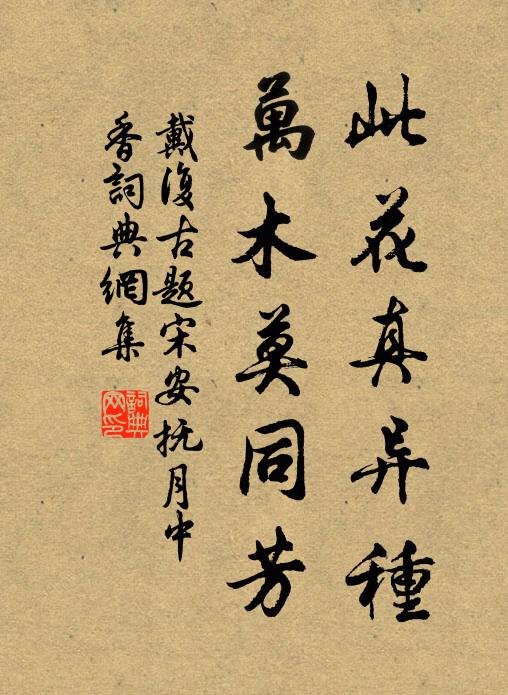 此花真异種
萬木莫同芳
戴復古題宋安抚月中
香詞典網集
詞典网印